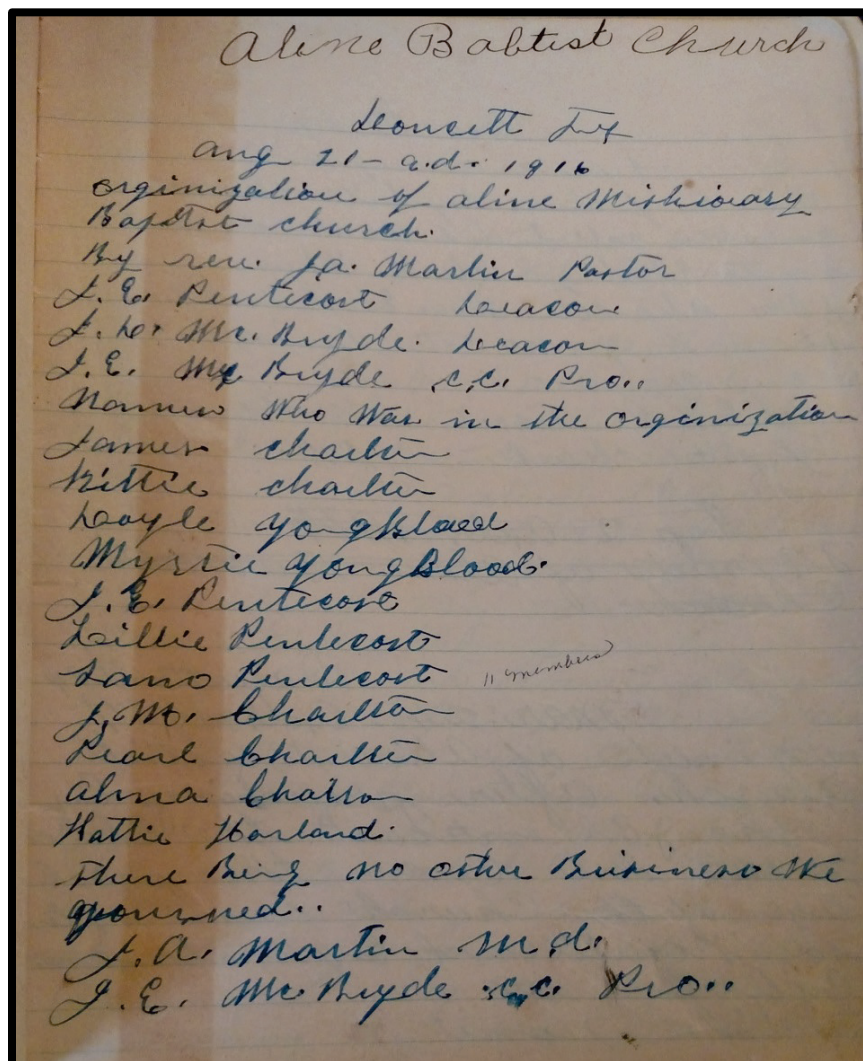 Aline Babtist Church
Doucett Tex
aug 21 - a.d. 1916
orginization of aline Mishionary
Baptist church.
By rev. J.a. Martin Pastor
J.E. Pentecost Deacon
J.D. Mc. Bryde. Deacon
J.E. Mc Bryde c.c. Pro..
Names Who Was in the orginization
James charlton
Kittie charlton
Doyle yongBlood
Myrtie yongBlood.
J.E. Pentecost
Lillie Pentecost
Pentecost 11 members
J.M. Charlton
Pearl Charlton
alma
Hattie Harland.
there Being no other Business We
J.A. Martin M.d.
J.E. Mc Bryde c.c. Pro..